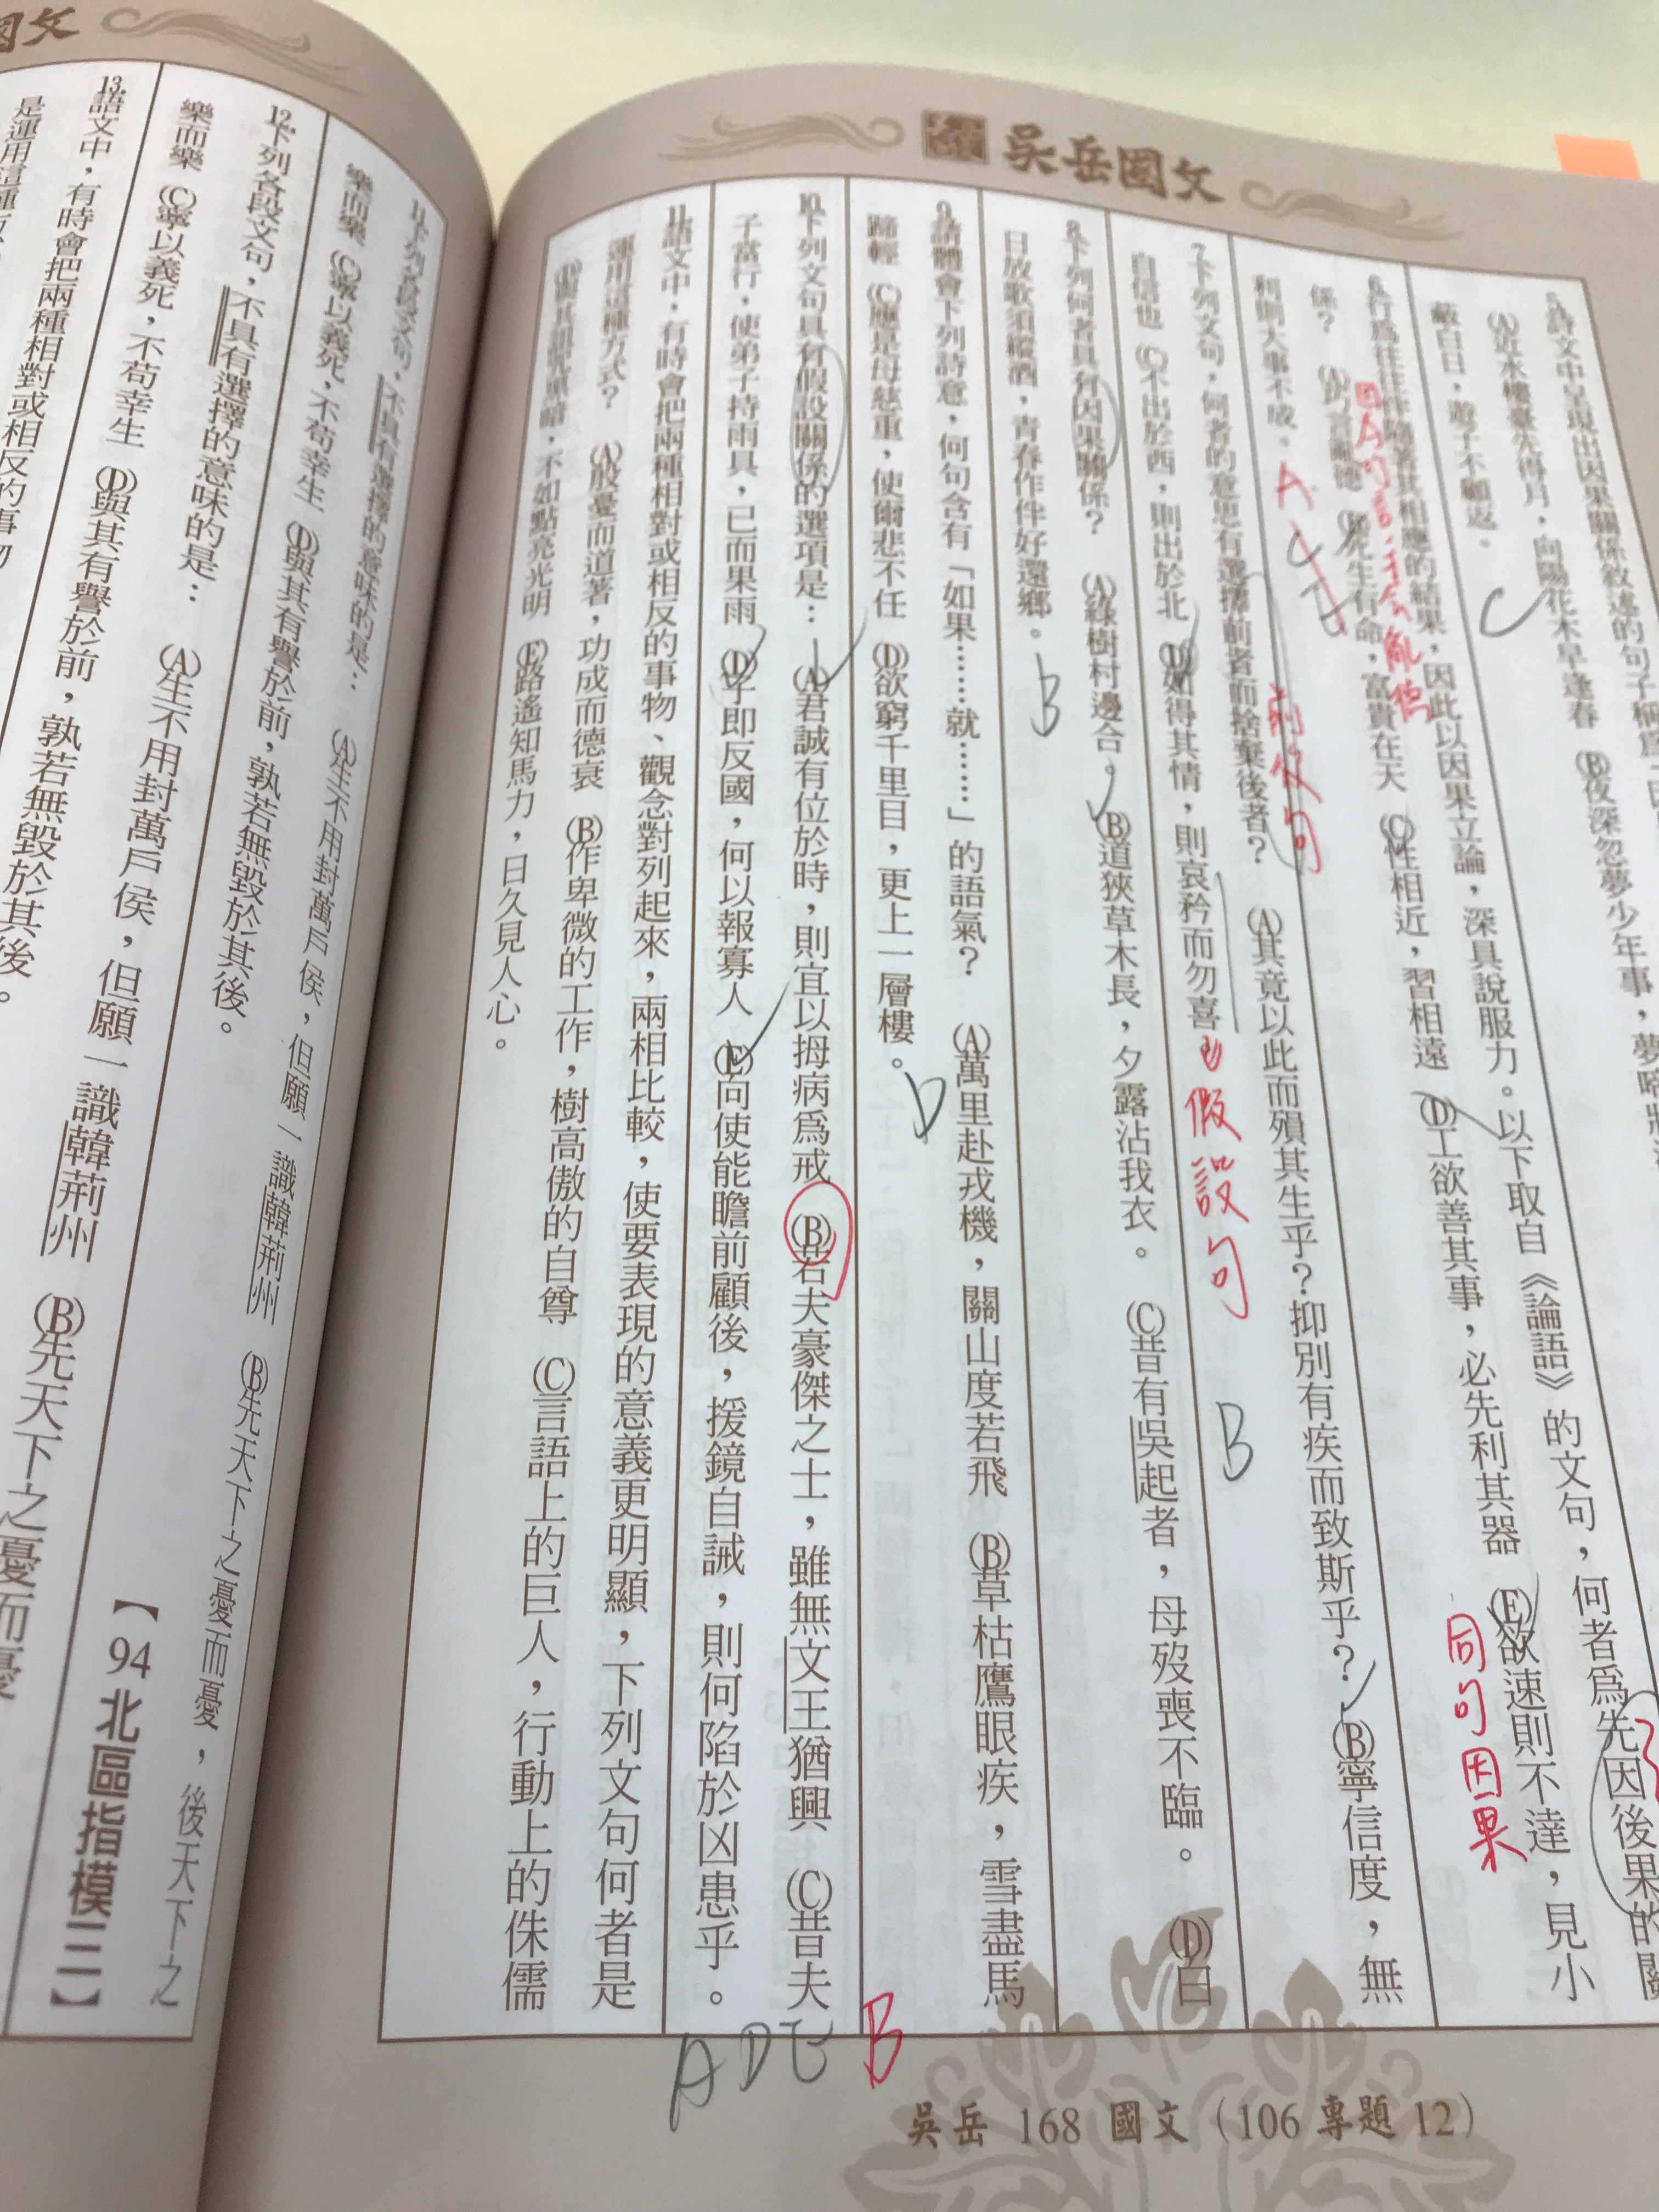 吳岳國文
5.詩文中呈現出因果關係敘述的句子稱爲
(A)近水樓臺先得月，向陽花木早逢春 (B)夜深忽夢少年事，夢啼
蔽白日，遊子不顧返。
C
6.行爲往往伴隨著其相應的結果，因此以因果立論，深具說服力。以下取自《論語》的文句，何者爲先因後果的關
係？ (A)巧言亂德 (B)死生有命，富貴在天 (C)性相近，習相遠 (D)工欲善其事，必先利其器 (E)欲速則不達，見小
利則大事不成。
同句因果
7.下列文句，何者的意思有選擇前者而捨棄後者？ (A)其竟以此而殞其生乎？抑別有疾而致斯乎？ (B)寧信度，無
自信也 (C)不出於西，則出於北 (D)如得其情，則哀矜而勿喜
假設句
B
8.下列何者具有因果關係？ (A)綠樹村邊合。 (B)道狹草木長，夕露沾我衣。 (C)昔有吳起者，母歿喪不臨。 (D)白
日放歌須縱酒，青春作伴好還鄉。
B
9.請體會下列詩意，何句含有「如果……就……」的語氣？ (A)萬里赴戎機，關山度若飛 (B)草枯鷹眼疾，雪盡馬
蹄輕 (C)應是母慈重，使爾悲不任 (D)欲窮千里目，更上一層樓。
D
10.下列文句具有假設關係的選項是： (A)君誠有位於時，則宜以拇病爲戒 (B)若夫豪傑之士，雖無文王猶興 (C)昔夫
子當行，使弟子持雨具，已而果雨 (D)子即反國，何以報寡人 (E)向使能瞻前顧後，援鏡自誡，則何陷於凶患乎。
ADE
B
11.語文中，有時會把兩種相對或相反的事物、觀念對列起來，兩相比較，使要表現的意義更明顯，下列文句何者是
運用這種方式？ (A)殷憂而道著，功成而德衰 (B)作卑微的工作，樹高傲的自尊 (C)言語上的巨人，行動上的侏儒
不如點亮光明 (E)路遙知馬力，日久見人心。
吳岳 168 國文（106 專題 12）
國文
11.下列各段文句，不具有選擇的意味的是： (A)生不用封萬戶侯，但願一識韓荊州 (B)先天下之憂而憂，後天下之
樂而樂 (C)寧以義死，不苟幸生 (D)與其有譽於前，孰若無毀於其後。
12.下列各段文句，不具有選擇的意味的是： (A)生不用封萬戶侯，但願一識韓荊州 (B)先天下之憂而憂
樂而樂 (C)寧以義死，不苟幸生 (D)與其有譽於前，孰若無毀於其後。
【94北區指模二】
13.語文中，有時會把兩種相對或相反的事物
是運用這種